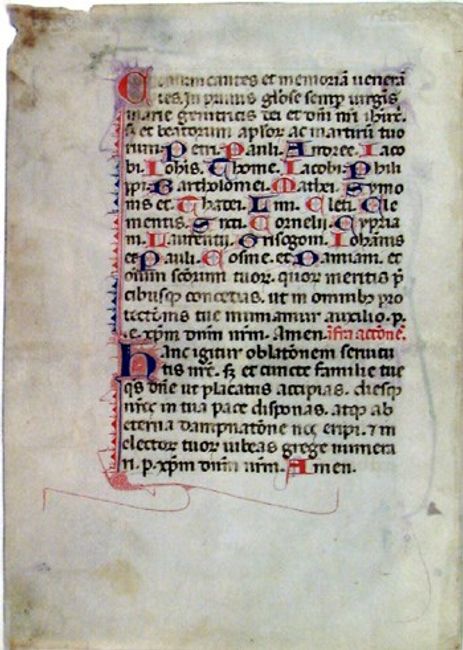 Comunicantes et memoriã venerã
tes. In primis glõse semp̱ virgĩs
marie genitricis dei et dñi nr̃i ihũ xp̃i.
S; et beatorum ap̃lor ac martirũ tuo
rum. Petri. Pauli. Andree. Iaco
bi. Iohis. Thome. Iacobi. Phili
ppi. Bartholomei. Mathei. Symo
nis et. Thadei. Lini. Cleti. Cle
mentis. Sixti. Cornelii. Cypria
ni. Laurentii. Grisogoni. Iohannis
et. Pauli. Cosme. et. Damiani. et
oĩum sc̃orum tuor. quor meritis p̃
cibusq; concedas. ut in omnibꝫ pro
tectiõis tue muniamur auxilio. p.
e. xp̃m dñm nr̃m. Amen. ĩfra actionẽ.
Hanc igitur oblatõnem servitu
tis nr̃e. s; et cuncte familie tue
qs dñe ut placatus accipias. diesq;
nr̃os in tua pace disponas. atq; ab
eterna dampnatõne nos eripi. ⁊ in
elector tuor iubeas grege numera
ri. p. xp̃m dñm nr̃m. Amen.